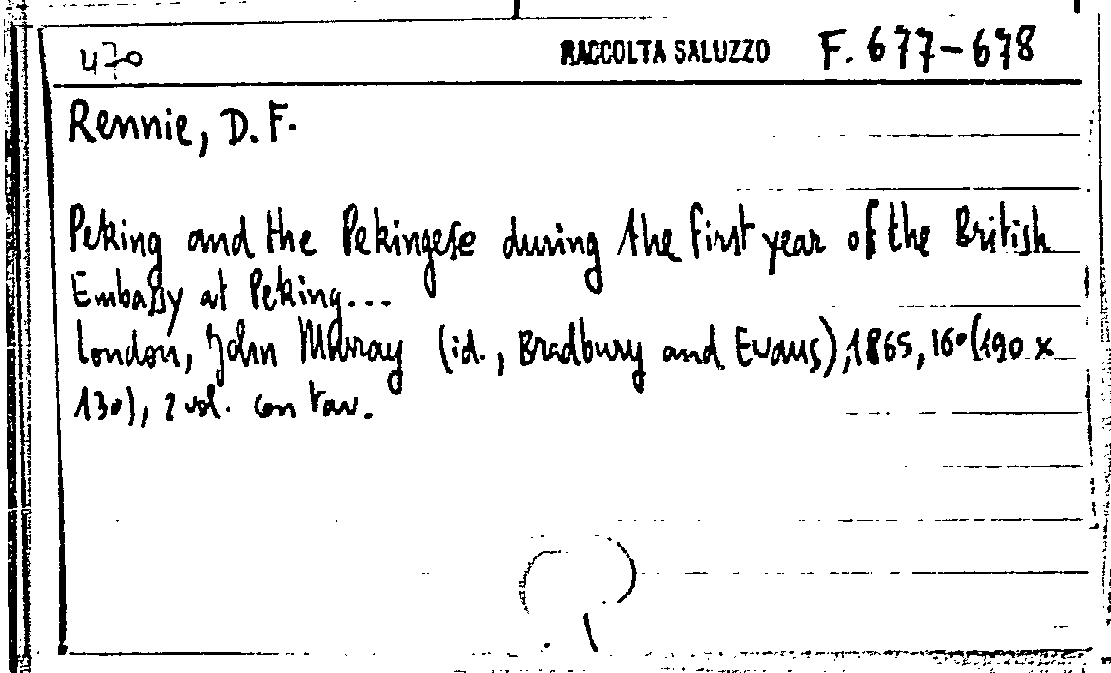 470 RACCOLTA SALUZZO F. 677-678
Rennie, D. F.
Peking and the Pekingese during the first year of the British
Embassy at Peking...
London, John Murray (id., Bradbury and Evans), 1865, 16°(190 x
130), 2 vol. con tav.